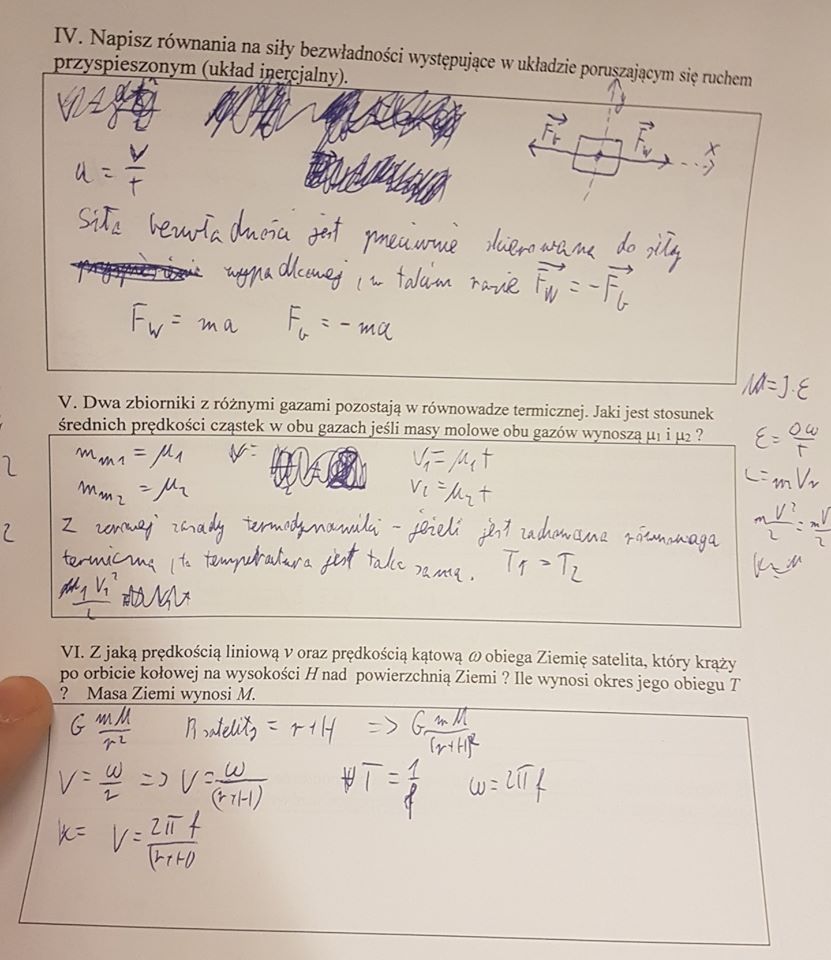 IV. Napisz równania na siły bezwładności występujące w układzie poruszającym się ruchem
przyspieszonym (układ inercjalny).
a = v/t
F_b F_w x
y
Siła bezwładności jest przeciwnie skierowana do siły
wypadkowej, w takim razie F_w = -F_b
F_w = ma F_b = -ma
V. Dwa zbiorniki z różnymi gazami pozostają w równowadze termicznej. Jaki jest stosunek
średnich prędkości cząstek w obu gazach jeśli masy molowe obu gazów wynoszą μ1 i μ2 ?
m_m1 = μ1 V= V1 = μ1 t
m_m2 = μ2 V2 = μ2 t
Z zerowej zasady termodynamiki - jeżeli jest zachowana równowaga
termiczna, to temperatura jest taka sama. T1 = T2
μ1 V1²/2
M=J·ε
ε = Δω/t
L=mVr
mV²/2 = mV/2
2
2
VI. Z jaką prędkością liniową v oraz prędkością kątową ω obiega Ziemię satelita, który krąży
po orbicie kołowej na wysokości H nad powierzchnią Ziemi ? Ile wynosi okres jego obiegu T
? Masa Ziemi wynosi M.
G mM/r² R satelity = r+H => G mM/(r+H)²
V = ω/2 => V = ω/(r+H) T = 1/f ω = 2πf
V = 2πf/(r+H)